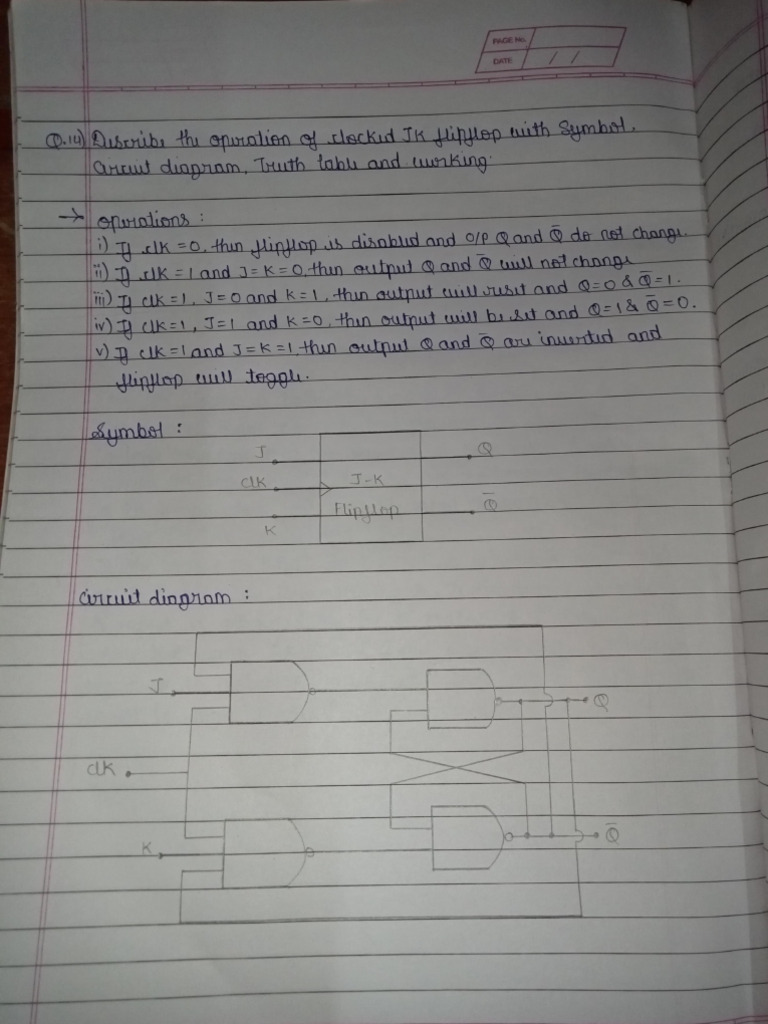 PAGE No.
DATE / /
Q.14) Describe the operation of clocked JK flipflop with Symbol,
Circuit diagram, Truth table and working.
→ Operations :
i) If clk = 0, then flipflop is disabled and O/P Q and Q̅ do not change.
ii) If clk = 1 and J = K = 0, then output Q and Q̅ will not change
iii) If clk = 1, J = 0 and K = 1, then output will reset and Q = 0 & Q̅ = 1.
iv) If clk = 1, J = 1 and K = 0, then output will be set and Q = 1 & Q̅ = 0.
v) If clk = 1 and J = K = 1, then output Q and Q̅ are inverted and
flipflop will toggle.
Symbol :
J Q
clk J-K
Flipflop Q̅
K
Circuit diagram :
J Q
clk
K Q̅